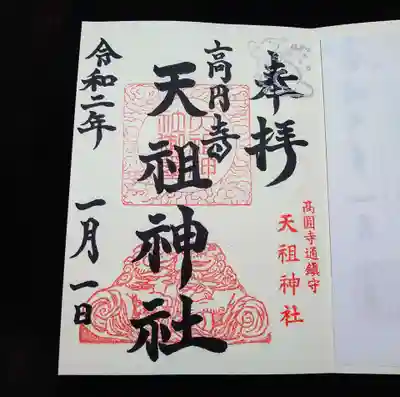 奉拝
高円寺
天祖神社
令和二年 一月一日
高圓寺通鎮守
天祖神社